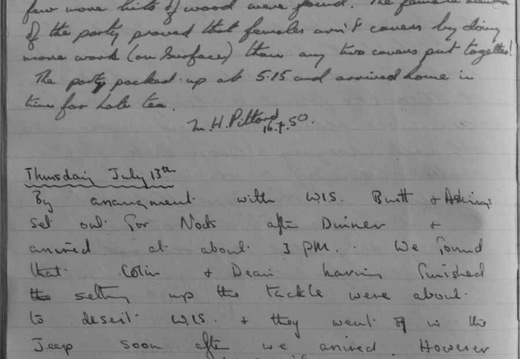 few more bits of wood were found. The female
of the party proved that females aren't cavers by doing
more work (on Surface) than any two cavers put together!
The party packed up at 5.15 and arrived home in
time for late tea.
16.7.50.
Thursday July 13th
By arrangment with W.I.S. Butt &
set out for Nods after Dinner &
arrived at about 3 PM. We found
that Colin & Dean having finished
the setting up the tackle were about
to desert W.I.S. & they went off in the
Jeep soon after we arrived. However